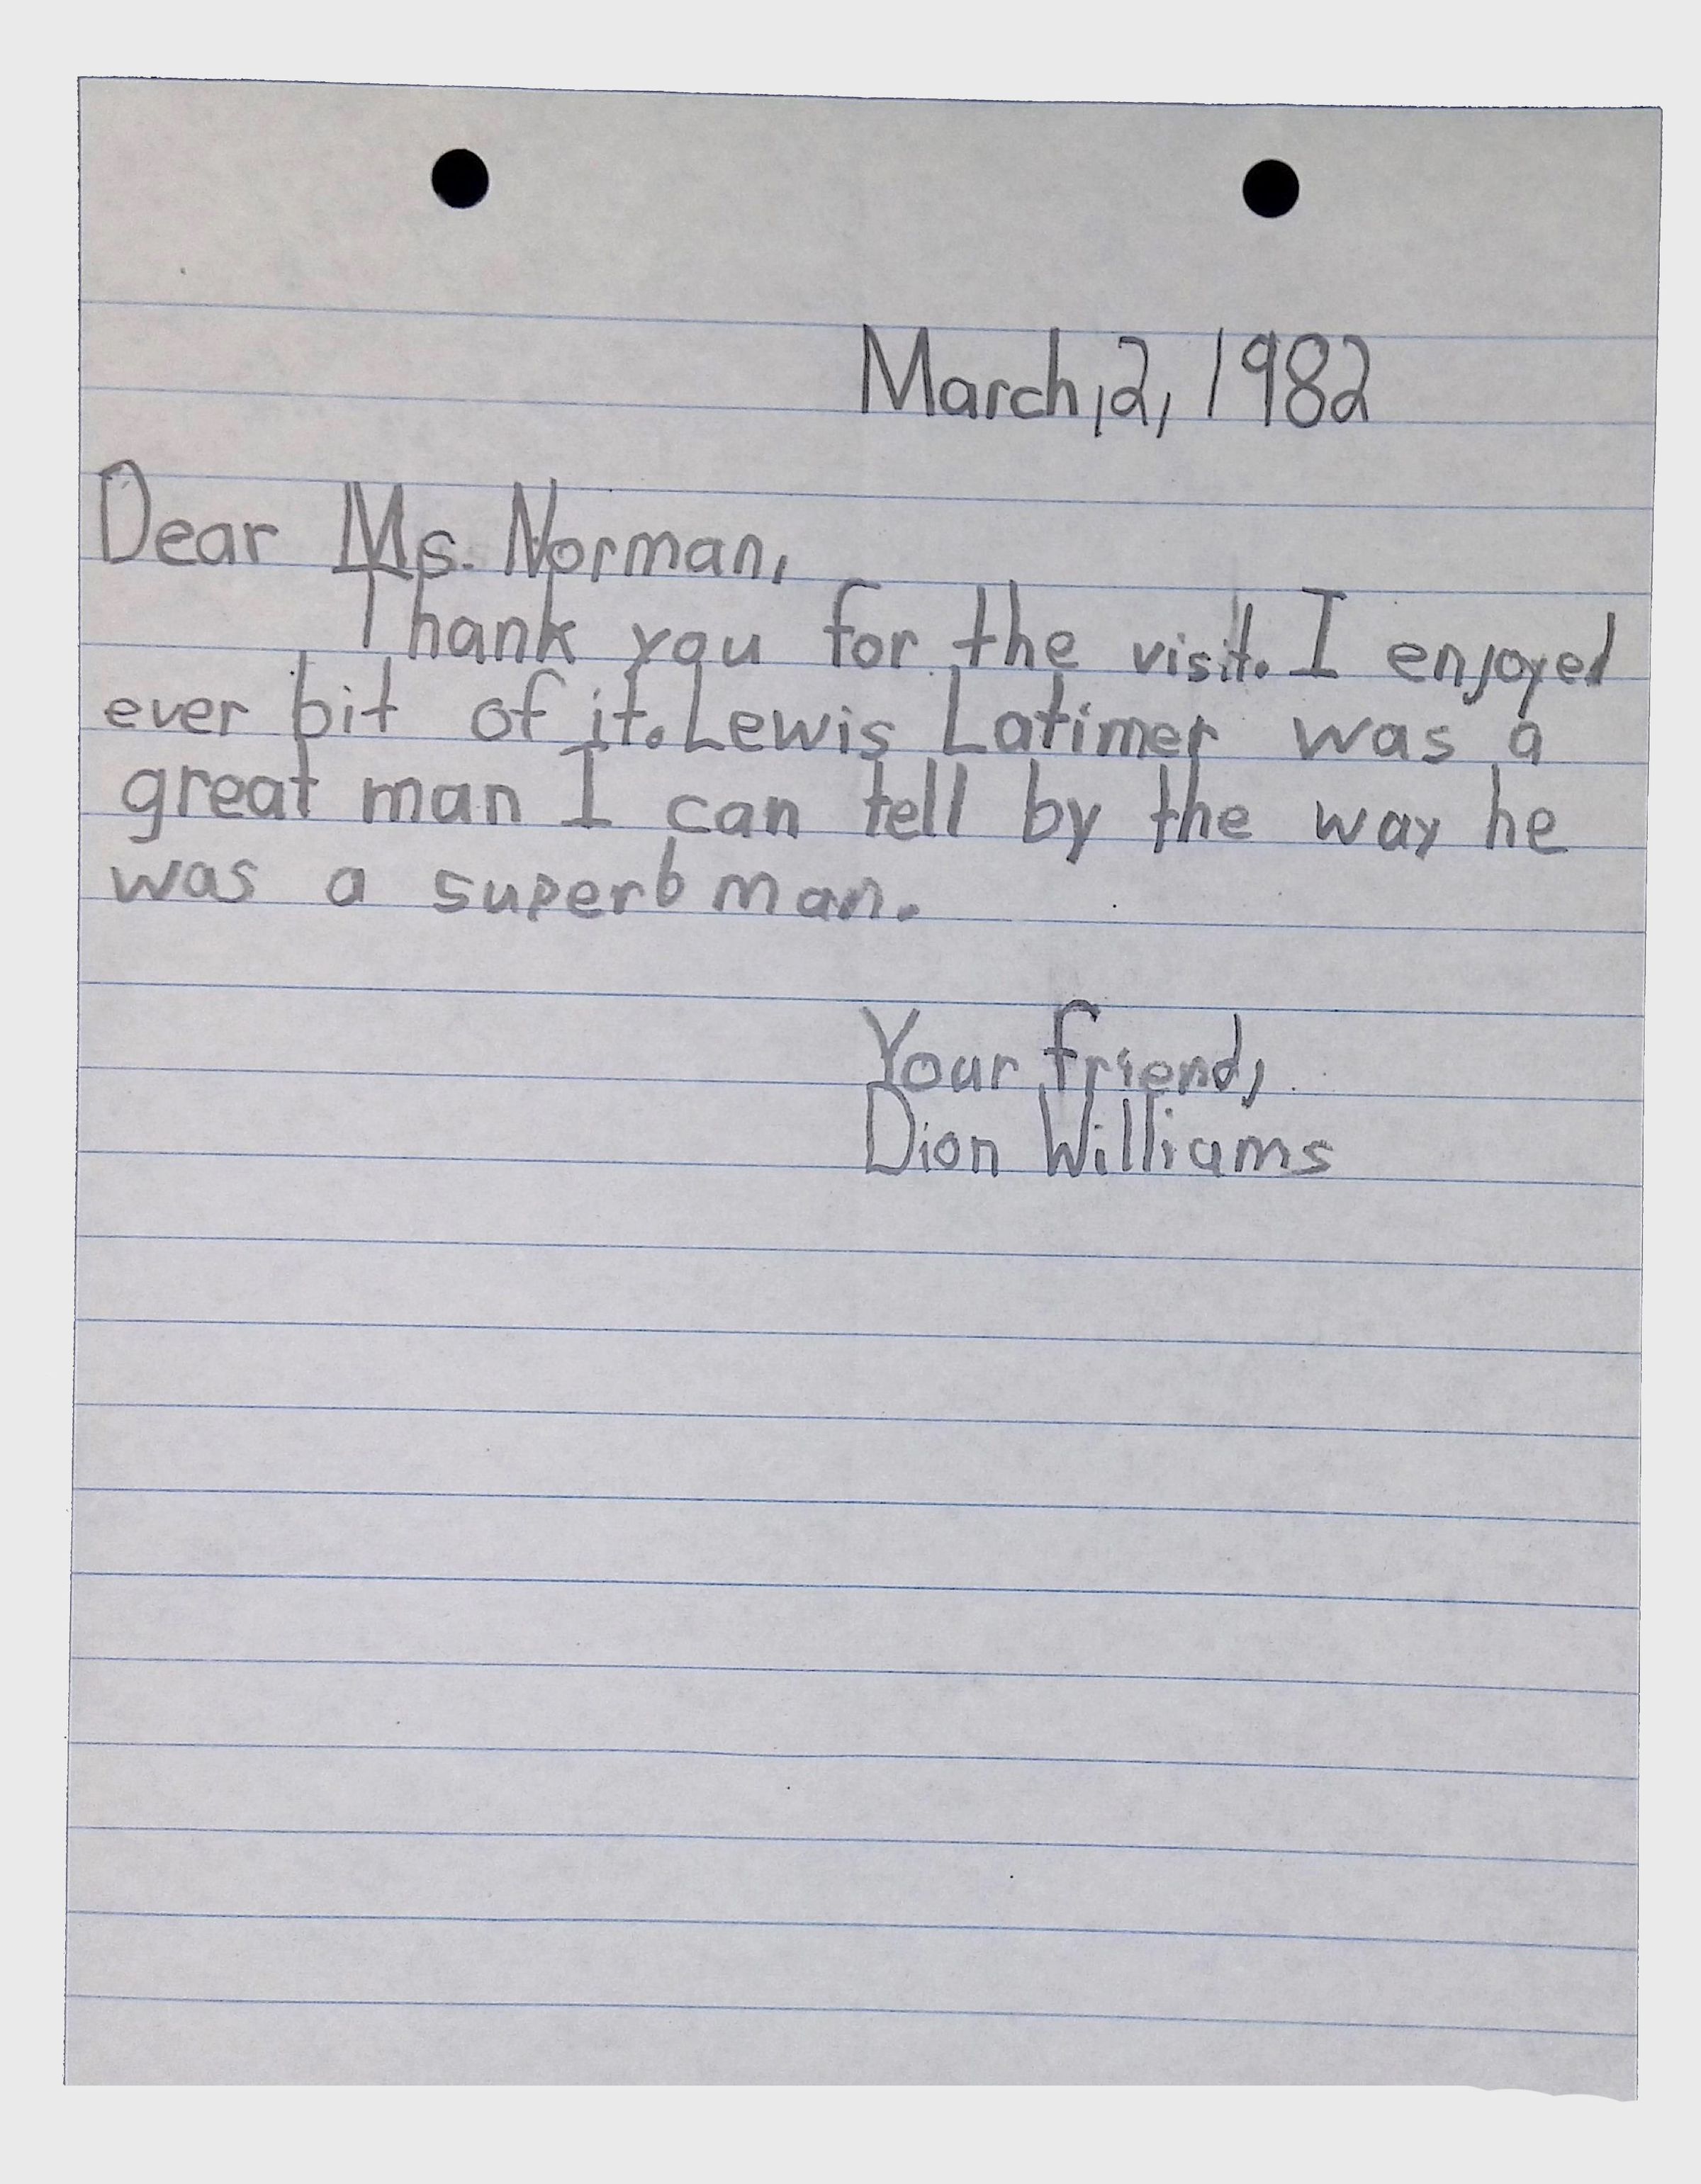 March,2, 1982
Dear Ms. Norman,
Thank you for the visit. I enjoyed
ever bit of it. Lewis Latimer was a
great man I can tell by the way he
was a superb man.
Your friend,
Dion Williams